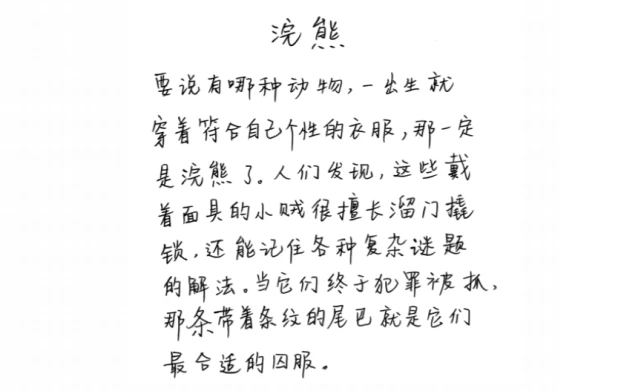 浣熊
要说有哪种动物,一出生就
穿着符合自己个性的衣服,那一定
是浣熊了。人们发现,这些戴
着面具的小贼很擅长溜门撬
锁,还能记住各种复杂谜题
的解法。当它们终于犯罪被抓,
那条带着条纹的尾巴就是它们
最合适的囚服。